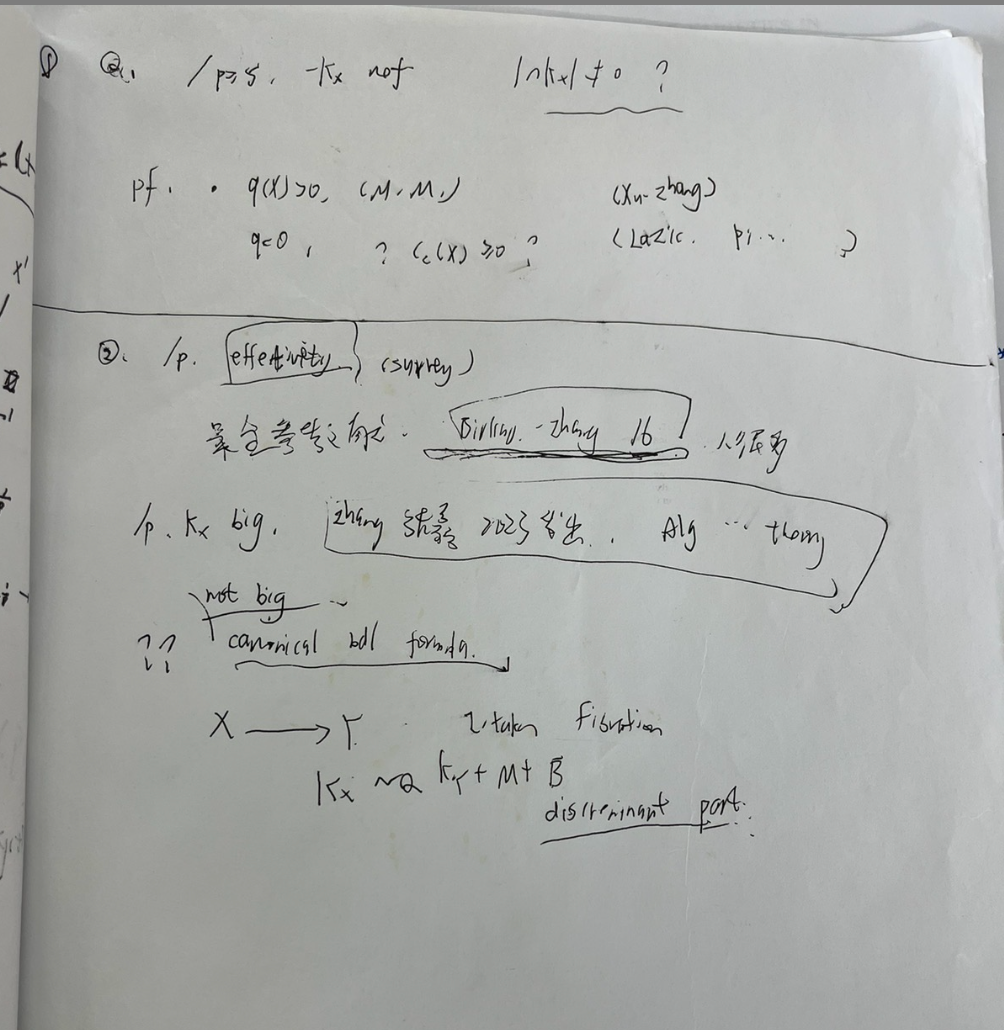 ① Q1. /p≥5, -Kx nef |nKx| ≠ 0 ?
pf. · q(X)>0, (M.M.) (Xu-Zhang)
q=0, ? C₂(X) ≥0 ? (Lazic. P... )
②. /p. effectivity (survey)
Birkar. -Zhang 16
/p. Kx big. Zhang 2023 Alg ... theory
not big ...
?? canonical bdl formula.
X → Y. Iitaka Fibration
Kx ~Q KY + M + B
discriminant part.